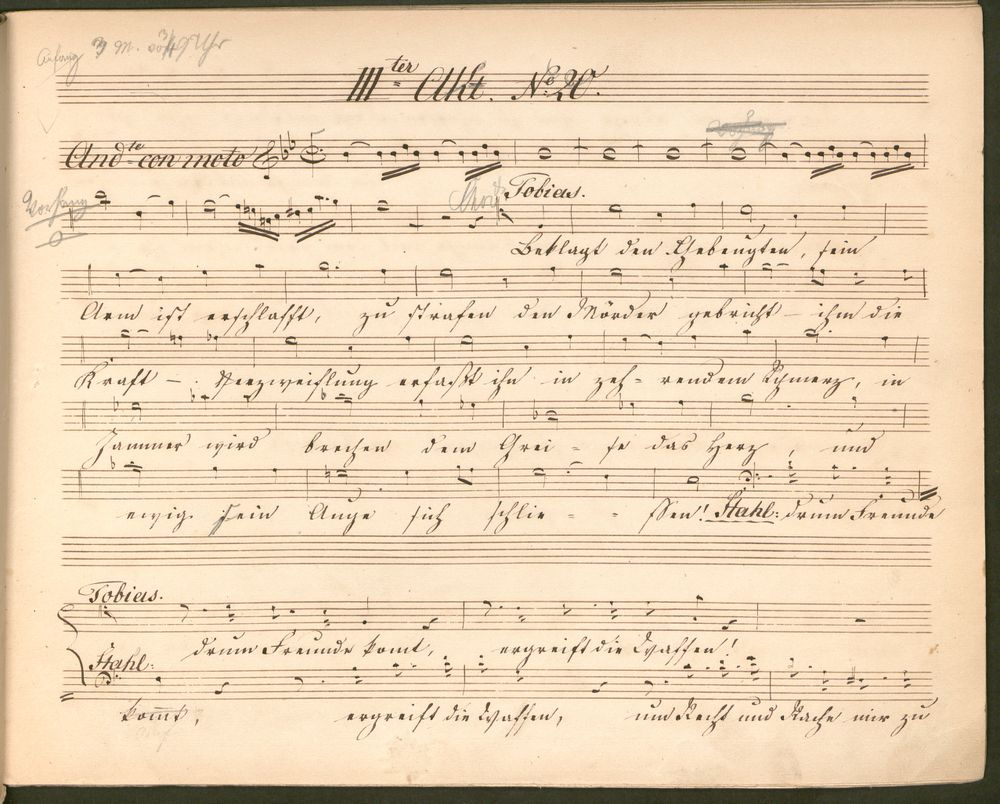 Anfang 3 M. vor 3/4 9 Uhr
IIIter Akt. No. 20.
Andte con moto
Vorhang
Tobias.
Beklagt den Gebeugten, sein
Arm ist erschlafft, zu strafen den Mörder gebricht – ihm die
Kraft – Verzweiflung erfaßt ihn in zeh-rendem Schmerz, in
Jammer wird brechen dem Grei-se das Herz, und
ewig sein Auge sich schlie--ssen! Stahl: drum Freunde
Tobias.
drum Freunde komt, ergreift die Waffen!
Stahl:
komt, ergreift die Waffen, um Recht und Rache mir zu